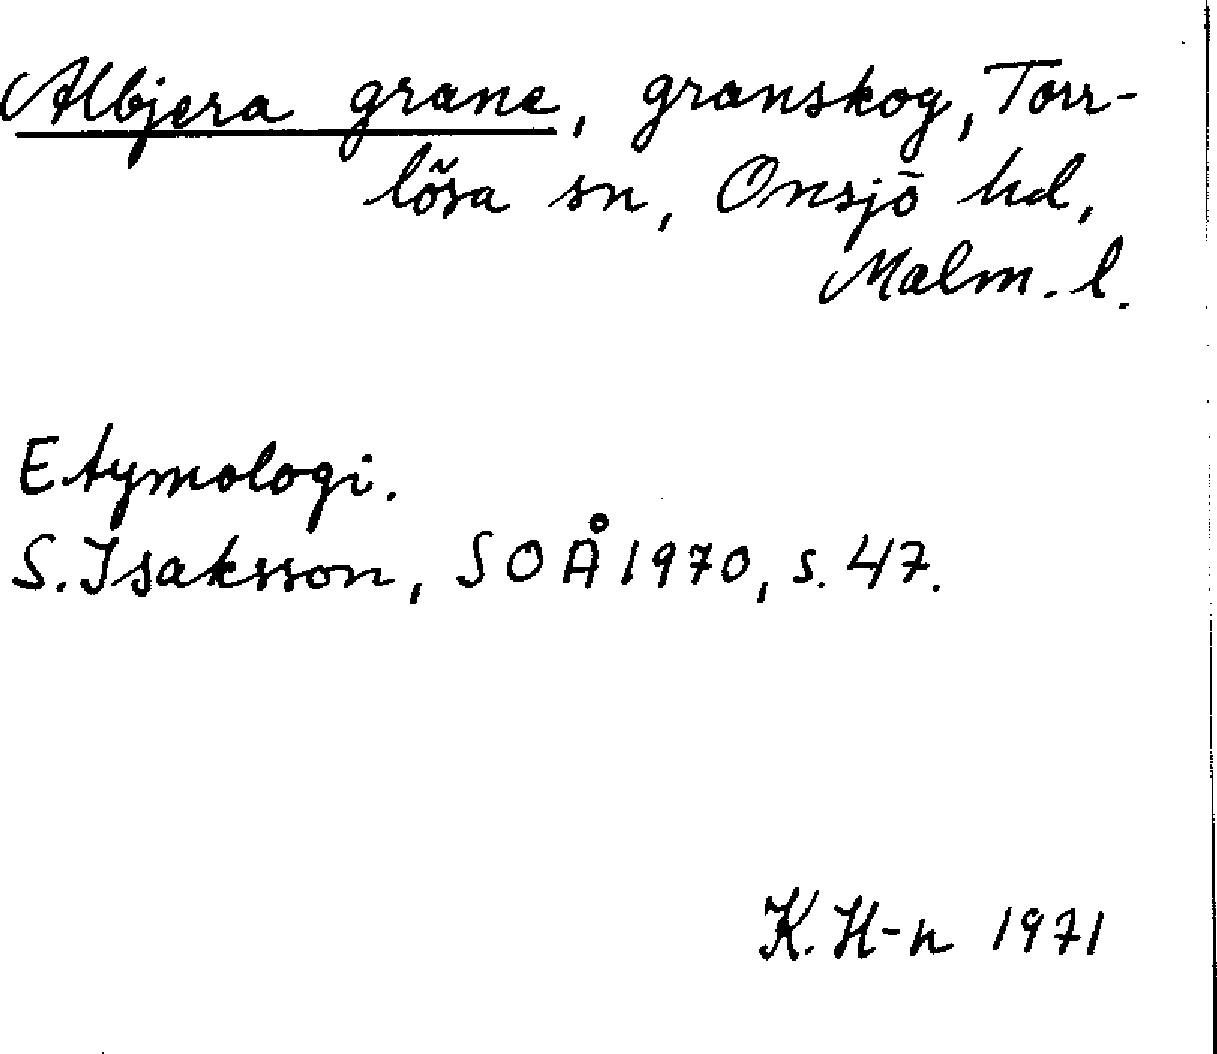 Albjera grane, granskog, Torr-
lösa sn, Onsjö hd,
Malm. l.
Etymologi.
S. Isaksson, SOÅ 1970, s. 47.
K. H-n 1971